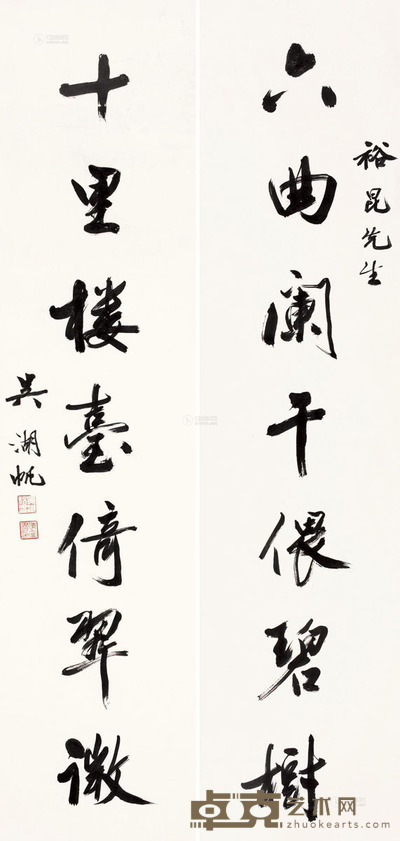 裕昆先生
六曲瀾干偎碧樹
十里楼臺倚翠微
吴湖帆
卓克艺术网
zhuokearts.com